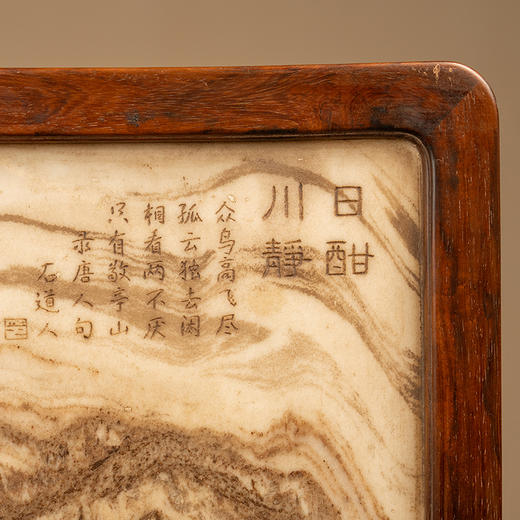 日酣
川靜
众鸟高飞尽
孤云独去闲
相看两不厌
只有敬亭山
录唐人句
石道人